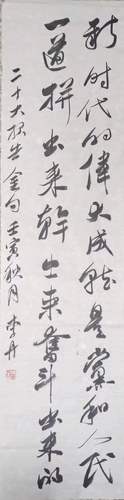 新时代的偉大成就是黨和人民
一道拼出来幹出来奮斗出来的
二十大报告金句壬寅秋月李丹